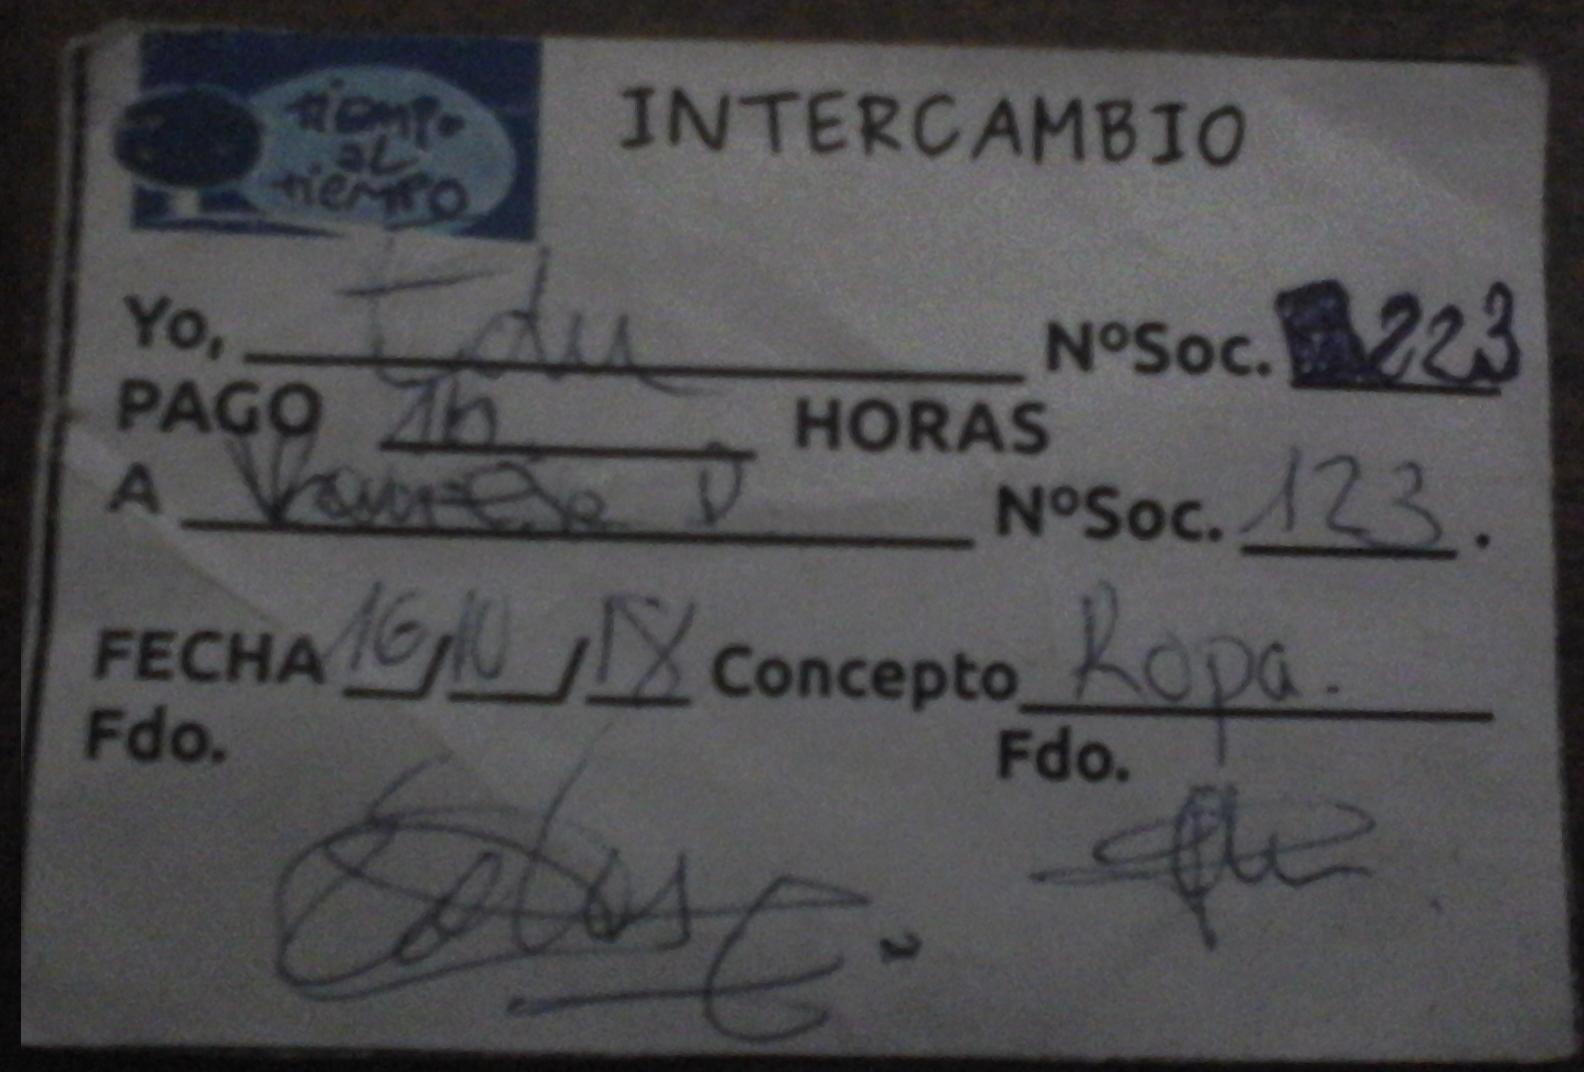 tiempo
al
tiempo
INTERCAMBIO
Yo, Edu NºSoc. 223
PAGO 1h HORAS
A NºSoc. 123.
FECHA 16/10/18 Concepto Ropa.
Fdo. Fdo.